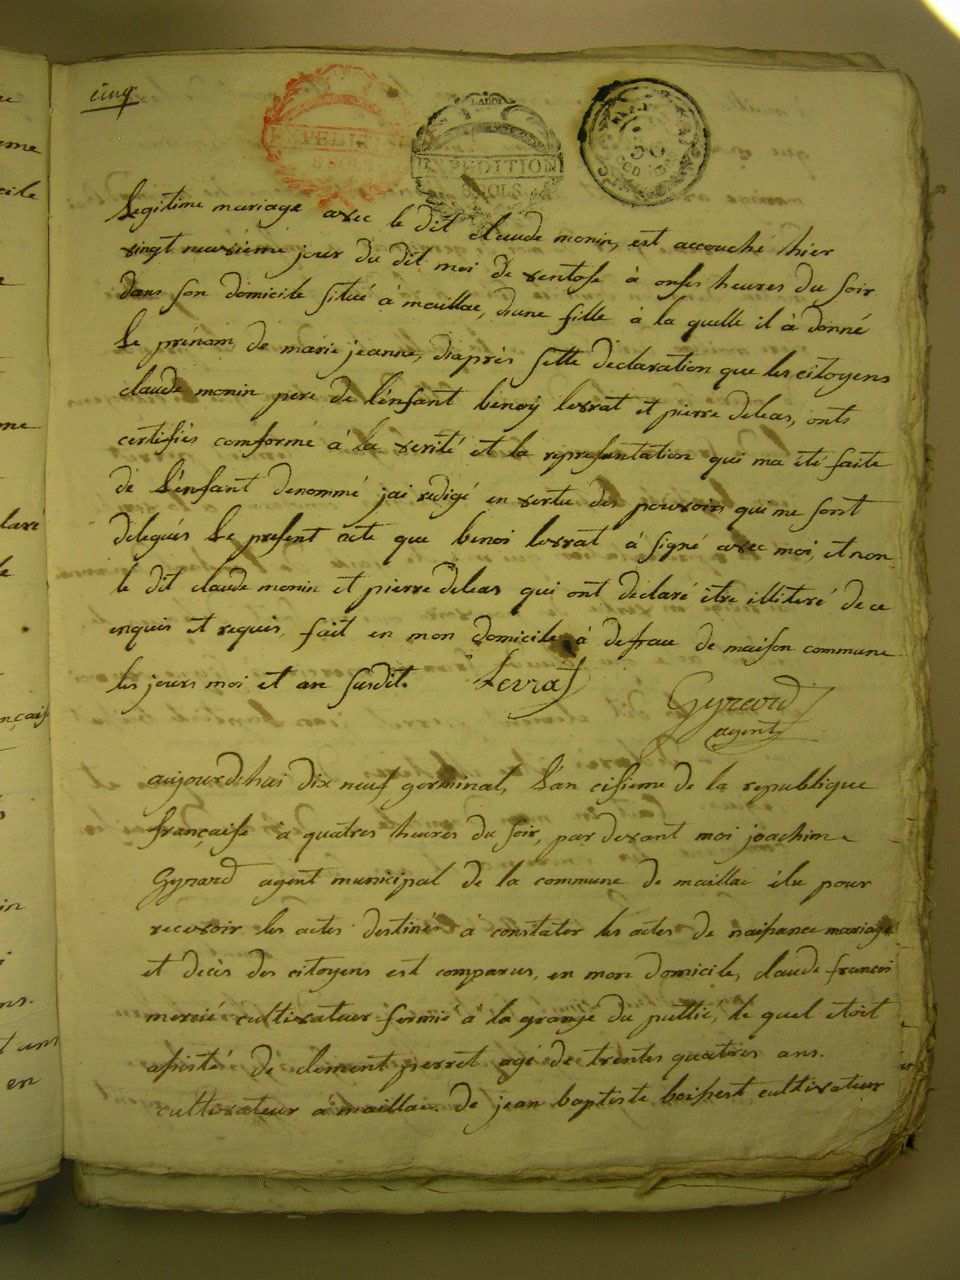 cinq
EXPEDITION
EXPEDITION
8 SOLS
legitime mariage avec le dit claude monin, est accouché hier
vingt neuvieme jour du dit moi de ventose à onse heures du soir
dans son domicile situé à maillac, d'une fille à la quelle il à donné
le prénom de marie jeanne, d'après sette declaration que les citoyens
claude monin pere de l'enfant benoy levrat et pierre deleas, onts
certifiés comformé à la verité et la representation qui ma été faite
de l'enfant denommé jai redigé en vertu des pouvoirs qui me sont
delegués le present acte que benoi levrat à signé avec moi, et non
le dit claude monin et pierre deleas qui ont déclaré être illiteré de ce
enquis et requis, fait en mon domicile à defrau de maison commune
les jours moi et an susdit. Levrat
Gyrard
agent
aujourdehui dix neuf germinal, l'an cisieme de la republique
française à quatres heures du soir, par devant moi joachim
Gyrard agent municipal de la commune de maillac élu pour
recevoir les actes destinés à constater les actes de naissance mariage
et décès des citoyens est comparus, en mon domicile, claude francoi
mercié cultivateur fermié à la grange du puttié, le quel étoit
asisté de clement perret agé de trentes quatres ans.
cultivateur à maillac. de jean baptiste boissert cultivateur